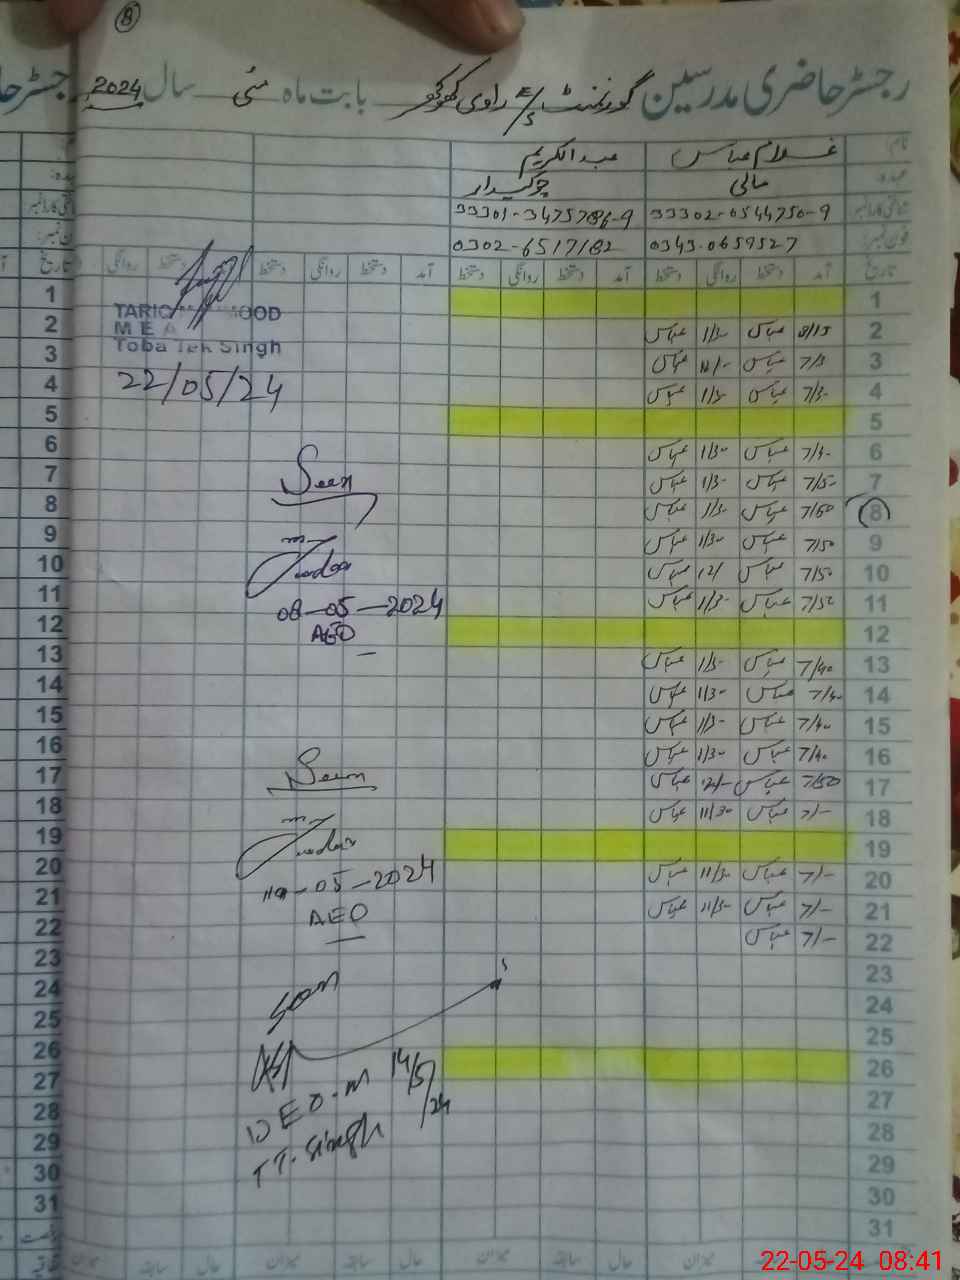 8
رجسٹر حاضری مدرسین گورنمنٹ E/S راوی کھوکھر بابت ماہ مئی سال 2024
نام: غلام عباس عبدالکریم
عہدہ: مالی چوکیدار
شناختی کارڈ نمبر 33302-0544750-9 33301-3475786-9
فون نمبر: 0343-0659527 0302-6517182
تاریخ آمد دستخط روانگی دستخط آمد دستخط روانگی دستخط آمد دستخط روانگی دستخط
1
2 8/15 عباس 1/3- عباس
3 7/3 عباس 12/- عباس
4 7/3- عباس 1/3- عباس
5
6 7/3- عباس 1/30 عباس
7 7/50 عباس 1/3- عباس
8 7/50 عباس 1/3- عباس
9 7/50 عباس 1/30 عباس
10 7/50 عباس 12/ عباس
11 7/50 عباس 1/3- عباس
12
13 7/40 عباس 1/3- عباس
14 7/40 عباس 1/30 عباس
15 7/40 عباس 1/3- عباس
16 7/40 عباس 1/30 عباس
17 7/50 عباس 12/- عباس
18 7/- عباس 11/30 عباس
19
20 7/- عباس 11/3- عباس
21 7/- عباس 11/3- عباس
22 7/- عباس
23
24
25
26
27
28
29
30
31
میزان سابقہ حال میزان سابقہ حال میزان سابقہ حال
TARIQ MEHMOOD
M E A
Toba Tek Singh
22/05/24
Seen
08-05-2024
AEO
Seen
-05-2024
AEO
Seen
DEO-M 14/5/24
TT. Singh
22-05-24 08:41